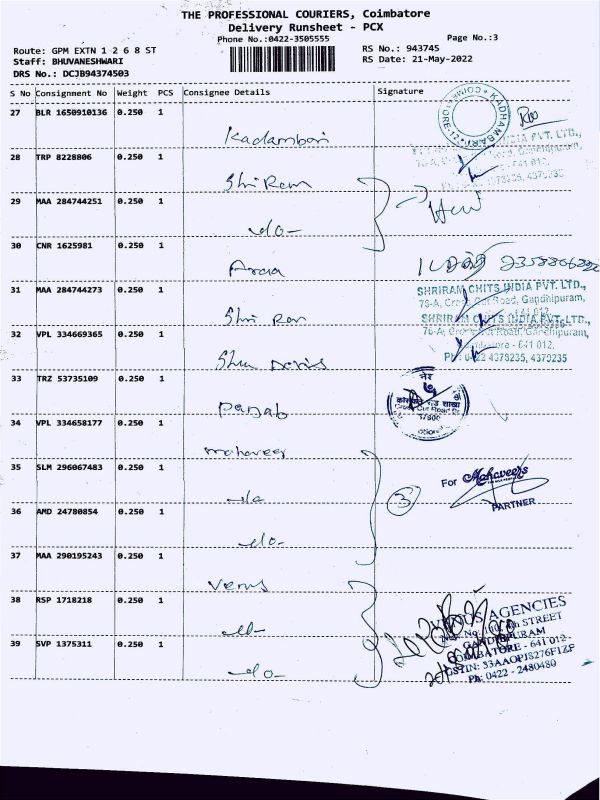 THE PROFESSIONAL COURIERS, Coimbatore
Delivery Runsheet - PCX
Phone No.:0422-3505555
Page No.:3
Route: GPM EXTN 1 2 6 8 ST
RS No.: 943745
Staff: BHUVANESHWARI
RS Date: 21-May-2022
DRS No.: DCJB94374503
S No Consignment No Weight PCS Consignee Details Signature
27 BLR 1650910136 0.250 1
Kadambari
28 TRP 8228806 0.250 1
Shri Ram
29 MAA 284744251 0.250 1
-do-
30 CNR 1625981 0.250 1
31 MAA 284744273 0.250 1
Shri Ram
SHRIRAM CHITS INDIA PVT. LTD.,
76-A, Cross Cut Road, Gandhipuram,
32 VPL 334669365 0.250 1
SHRIRAM CHITS INDIA PVT. LTD.,
76-A, Cross Cut Road, Gandhipuram,
Coimbatore - 641 012.
Ph : 0422 4378235, 4379235
33 TRZ 53735109 0.250 1
Panjab
34 VPL 334658177 0.250 1
mahaveer
35 SLM 296067483 0.250 1
-do-
3
For Mahaveer's
PARTNER
36 AMD 24780854 0.250 1
-do-
37 MAA 290195243 0.250 1
Venus
38 RSP 1718218 0.250 1
-do-
VENUS AGENCIES
STREET
GANDHIPURAM
COIMBATORE - 641 012.
GSTIN: 33AAOPJ8276F1ZF
Ph: 0422 - 2480480
39 SVP 1375311 0.250 1
-do-